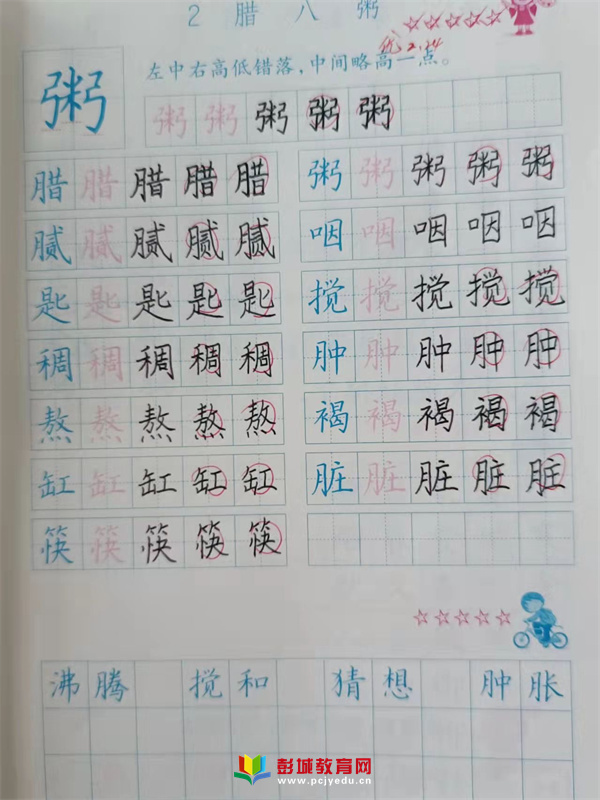 2 腊 八 粥
优 2.24
左中右高低错落，中间略高一点。
粥 粥 粥 粥 粥 粥
腊 腊 腊 腊 腊 粥 粥 粥 粥 粥
腻 腻 腻 腻 腻 咽 咽 咽 咽 咽
匙 匙 匙 匙 匙 搅 搅 搅 搅 搅
稠 稠 稠 稠 稠 肿 肿 肿 肿 肿
熬 熬 熬 熬 熬 褐 褐 褐 褐 褐
缸 缸 缸 缸 缸 脏 脏 脏 脏 脏
筷 筷 筷 筷 筷
沸 腾 搅 和 猜 想 肿 胀
彭城教育网
www.pcjyedu.cn